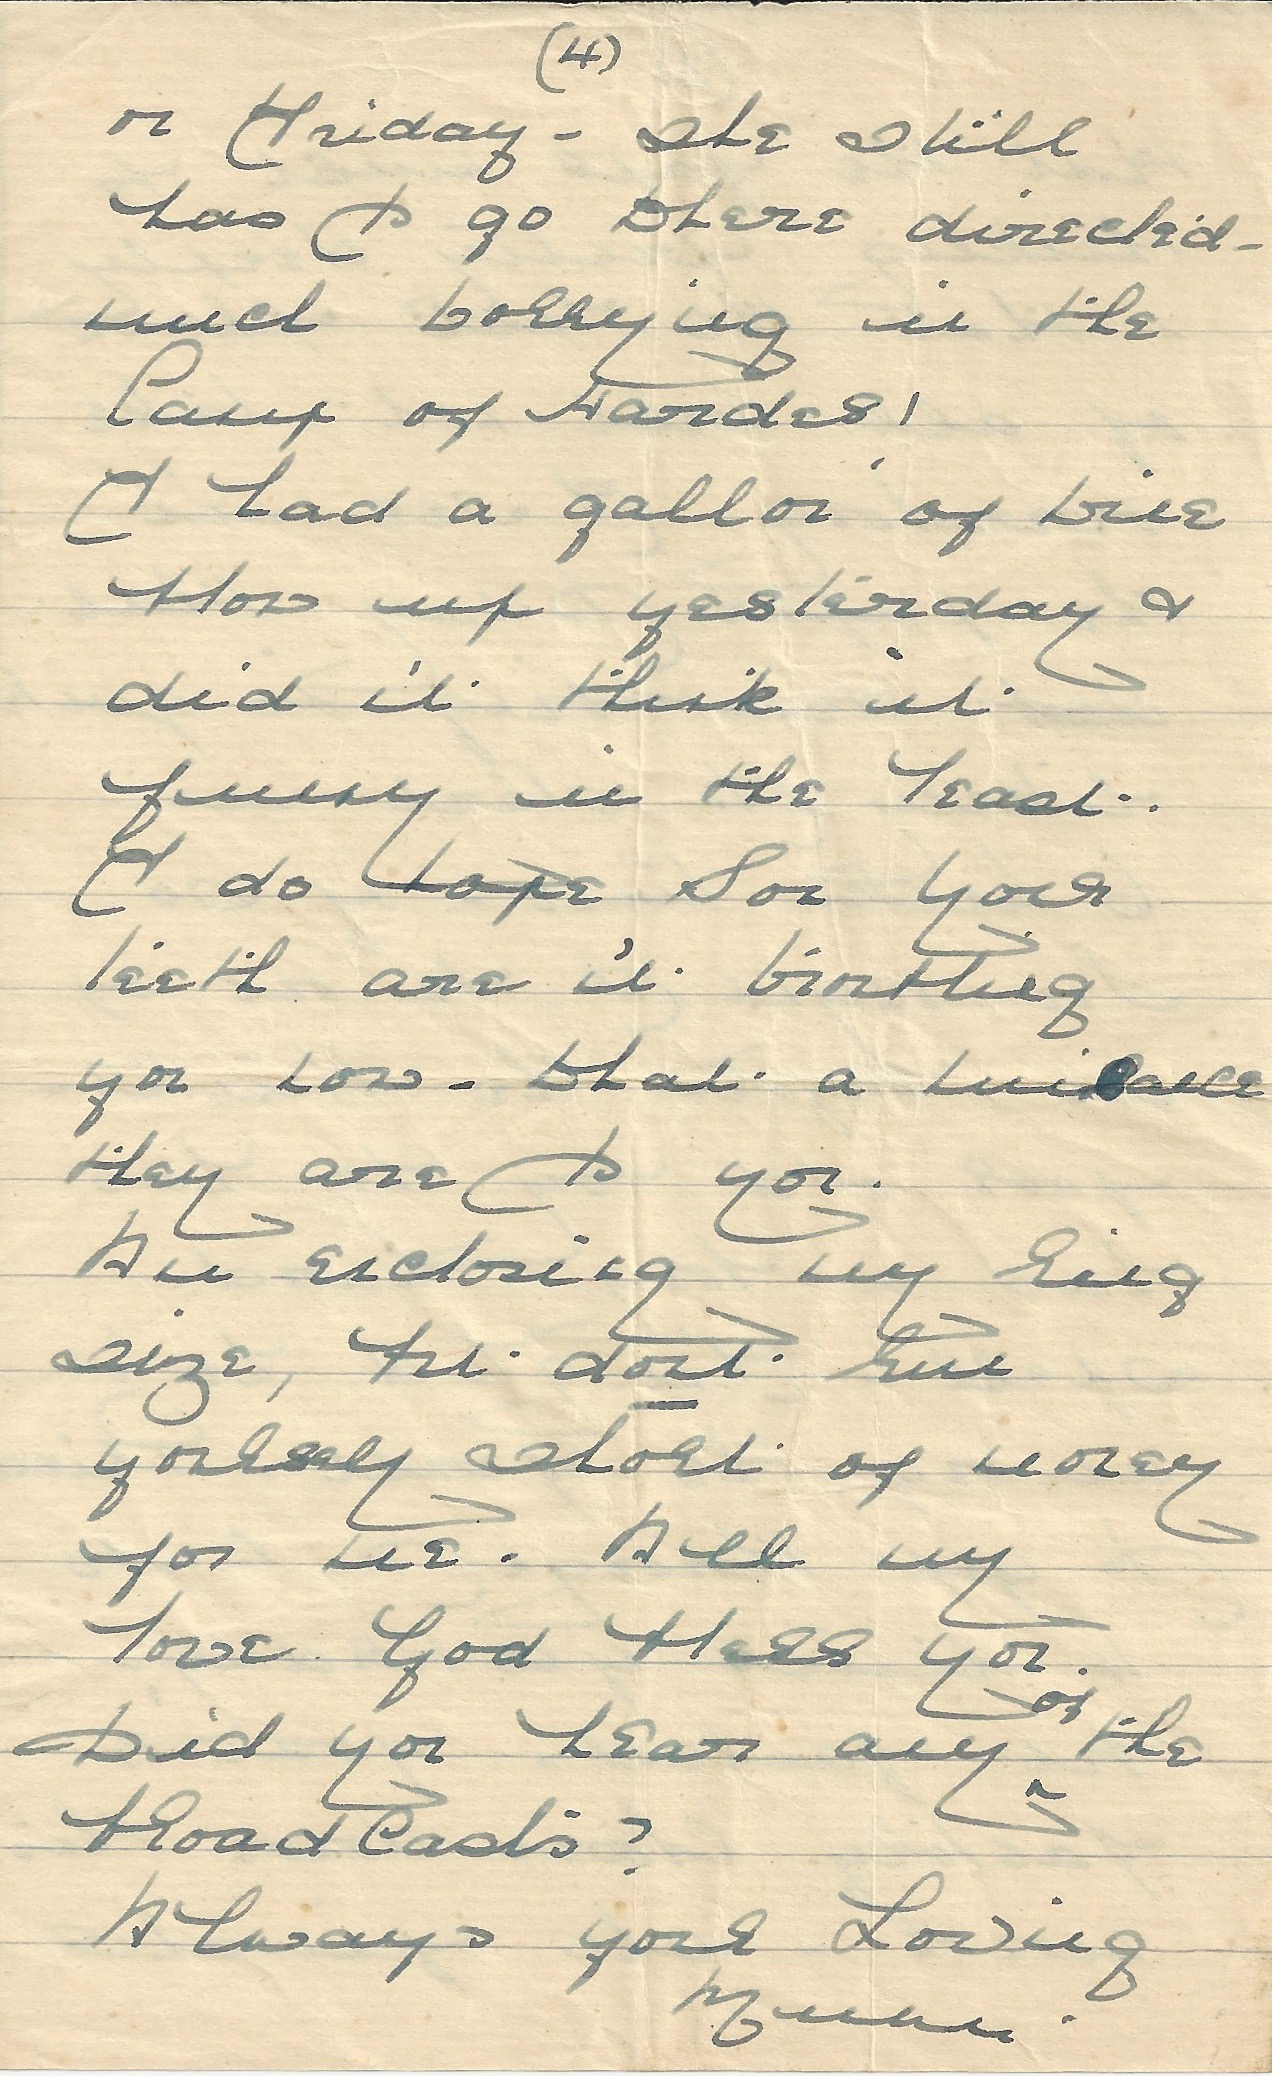 (4)
on Friday - She still
has to go there directed -
much worrying in the
Camp of
I had a gallon of wine
blow up yesterday &
didn't think it
funny in the least.
I do hope Son your
teeth aren't
you now - what a nuisance
they are to you.
Am enclosing my ring
size, but don't run
yourself short of money
for me. All my
love God bless you.
Did you hear any of the
Broadcasts?
Always your Loving
Mum.